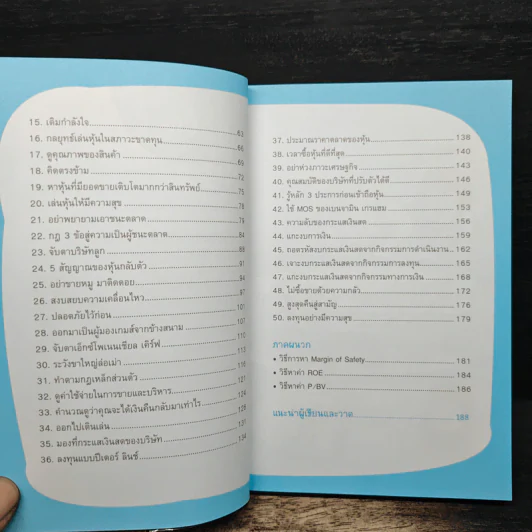 15. เติมกำลังใจ 63
16. กลยุทธ์เล่นหุ้นในสภาวะขาดทุน 66
17. ดูคุณภาพของสินค้า 69
18. คิดตรงข้าม 72
19. หาหุ้นที่มียอดขายเติบโตมากกว่าสินทรัพย์ 75
20. เล่นหุ้นให้มีความสุข 78
21. อย่าพยายามเอาชนะตลาด
22. กฎ 3 ข้อสู่ความเป็นผู้ชนะตลาด 84
23. จับตาบริษัทลูก 88
24. 5 สัญญาณของหุ้นกลับตัว 91
25. อย่าขายหมู มาติดดอย 94
26. สงบสยบความเคลื่อนไหว 97
27. ปลอดภัยไว้ก่อน 101
28. ออกมาเป็นผู้มองเกมส์จากข้างสนาม 107
29. จับตาเอ็กซ์โพเนนเชียล เคิร์ฟ 110
30. ระวังขาใหญ่ล่อเม่า 113
31. ทำตามกฎเหล็กส่วนตัว 118
32. ดูค่าใช้จ่ายในการขายและบริหาร 121
33. คำนวณดูว่าคุณจะได้เงินคืนกลับมาเท่าไร 124
34. ออกไปเดินเล่น 128
35. มองที่กระแสเงินสดของบริษัท 131
36. ลงทุนแบบปีเตอร์ ลินซ์ 134
37. ประมาณราคาตลาดของหุ้น 138
38. เวลาซื้อหุ้นที่ดีที่สุด 140
39. อย่าห่วงภาวะเศรษฐกิจ 143
40. คุณสมบัติของบริษัทที่ปรับตัวได้ดี 146
41. รู้หลัก 3 ประการก่อนเข้าถือหุ้น 149
42. ใช้ MOS ของเบนจามิน เกรแฮม 153
43. ความลับของกระแสเงินสด 156
44. แกะงบการเงิน 159
45. ถอดรหัสงบกระแสเงินสดจากกิจกรรมการดำเนินงาน 162
46. เจาะงบกระแสเงินสดจากกิจกรรมการลงทุน 165
47. แกะงบกระแสเงินสดจากกิจกรรมทางการเงิน 168
48. ไม่ซื้อขายด้วยความกลัว 172
49. สูงสุดคืนสู่สามัญ 176
50. ลงทุนอย่างมีความสุข 179
ภาคผนวก
• วิธีการหา Margin of Safety 181
• วิธีหาค่า ROE 184
• วิธีหาค่า P/BV 186
แนะนำผู้เขียนและวาด 188